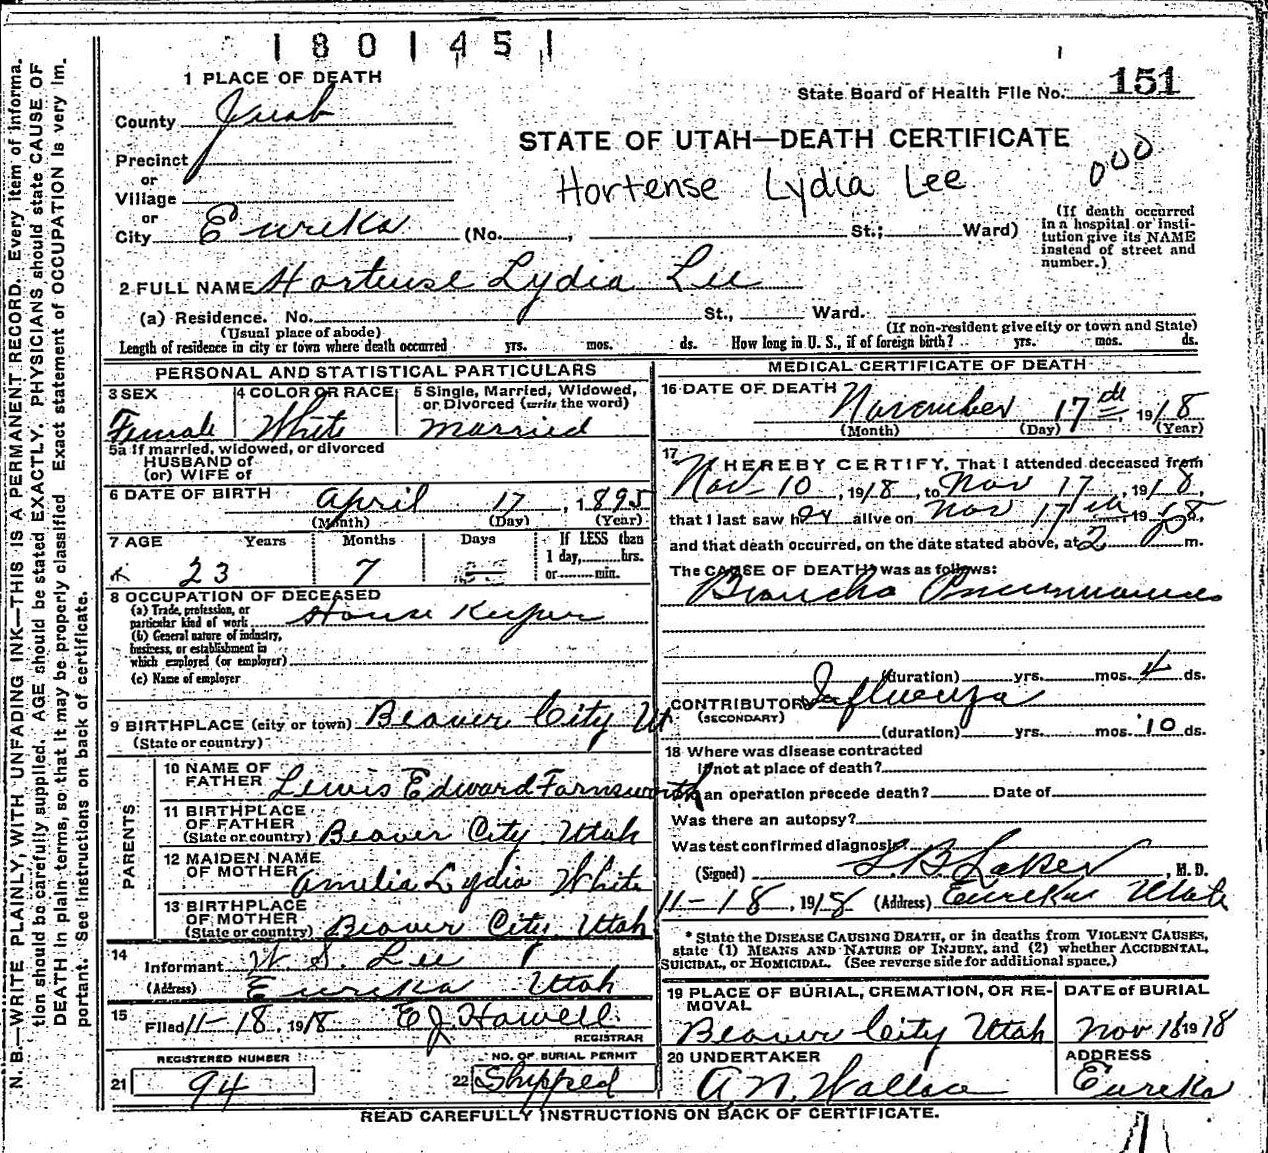 1801451
1 PLACE OF DEATH
State Board of Health File No. 151
County Juab
STATE OF UTAH—DEATH CERTIFICATE
000
Precinct
or
Village
Hortense Lydia Lee
or
City Eureka (No. , St.; Ward)
(If death occurred
in a hospital or insti-
tution give its NAME
instead of street and
number.)
2 FULL NAME Hortense Lydia Lee
(a) Residence. No. St., Ward.
(Usual place of abode)
(If non-resident give city or town and State)
Length of residence in city or town where death occurred yrs. mos. ds. How long in U. S., if of foreign birth? yrs. mos. ds.
PERSONAL AND STATISTICAL PARTICULARS
3 SEX 4 COLOR OR RACE 5 Single, Married, Widowed,
or Divorced (write the word)
Female White Married
5a If married, widowed, or divorced
HUSBAND of
(or) WIFE of
6 DATE OF BIRTH April 17, 1895
(Month) (Day) (Year)
7 AGE Years Months Days If LESS than
1 day, hrs.
or min.
23 7
8 OCCUPATION OF DECEASED
(a) Trade, profession, or
particular kind of work House Keeper
(b) General nature of industry,
business, or establishment in
which employed (or employer)
(c) Name of employer
9 BIRTHPLACE (city or town) Beaver City Ut
(State or country)
PARENTS
10 NAME OF
FATHER Lewis Edward Farnsworth
11 BIRTHPLACE
OF FATHER
(State or country) Beaver City Utah
12 MAIDEN NAME
OF MOTHER Amelia Lydia White
13 BIRTHPLACE
OF MOTHER
(State or country) Beaver City, Utah
14
Informant W. S. Lee
(Address) Eureka Utah
15
Filed 11-18, 1918 E J. Howell
REGISTRAR
REGISTERED NUMBER NO. OF BURIAL PERMIT
21 94 22 Shipped
MEDICAL CERTIFICATE OF DEATH
16 DATE OF DEATH November 17th, 1918
(Month) (Day) (Year)
17
I HEREBY CERTIFY, That I attended deceased from
Nov 10, 1918, to Nov 17, 1918,
that I last saw her alive on Nov 17th, 1918,
and that death occurred, on the date stated above, at 2 P m.
The CAUSE OF DEATH* was as follows:
Broncho Pneumonia
(duration) yrs. mos. 4 ds.
CONTRIBUTORY Influenza
(SECONDARY)
(duration) yrs. mos. 10 ds.
18 Where was disease contracted
if not at place of death?
Did an operation precede death? Date of
Was there an autopsy?
Was test confirmed diagnosis
(Signed) , M. D.
11-18, 1918 (Address) Eureka Utah
* State the DISEASE CAUSING DEATH, or in deaths from VIOLENT CAUSES,
state (1) MEANS AND NATURE OF INJURY, and (2) whether ACCIDENTAL,
SUICIDAL, or HOMICIDAL. (See reverse side for additional space.)
19 PLACE OF BURIAL, CREMATION, OR RE-
MOVAL
DATE of BURIAL
Beaver City Utah Nov 18 1918
20 UNDERTAKER ADDRESS
A. N. Wallace Eureka
READ CAREFULLY INSTRUCTIONS ON BACK OF CERTIFICATE.
N. B.—WRITE PLAINLY, WITH UNFADING INK—THIS IS A PERMANENT RECORD. Every item of informa-
tion should be carefully supplied. AGE should be stated EXACTLY. PHYSICIANS should state CAUSE OF
DEATH in plain terms, so that it may be properly classified. Exact statement of OCCUPATION is very im-
portant. See instructions on back of certificate.